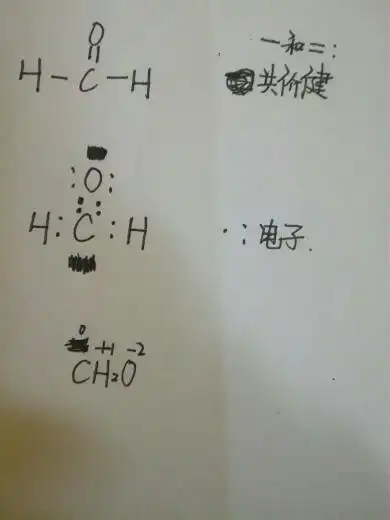 O
||
H-C-H
一和二:
共价健
:O:
::
H:C:H
·:电子.
0 +1 -2
CH₂O